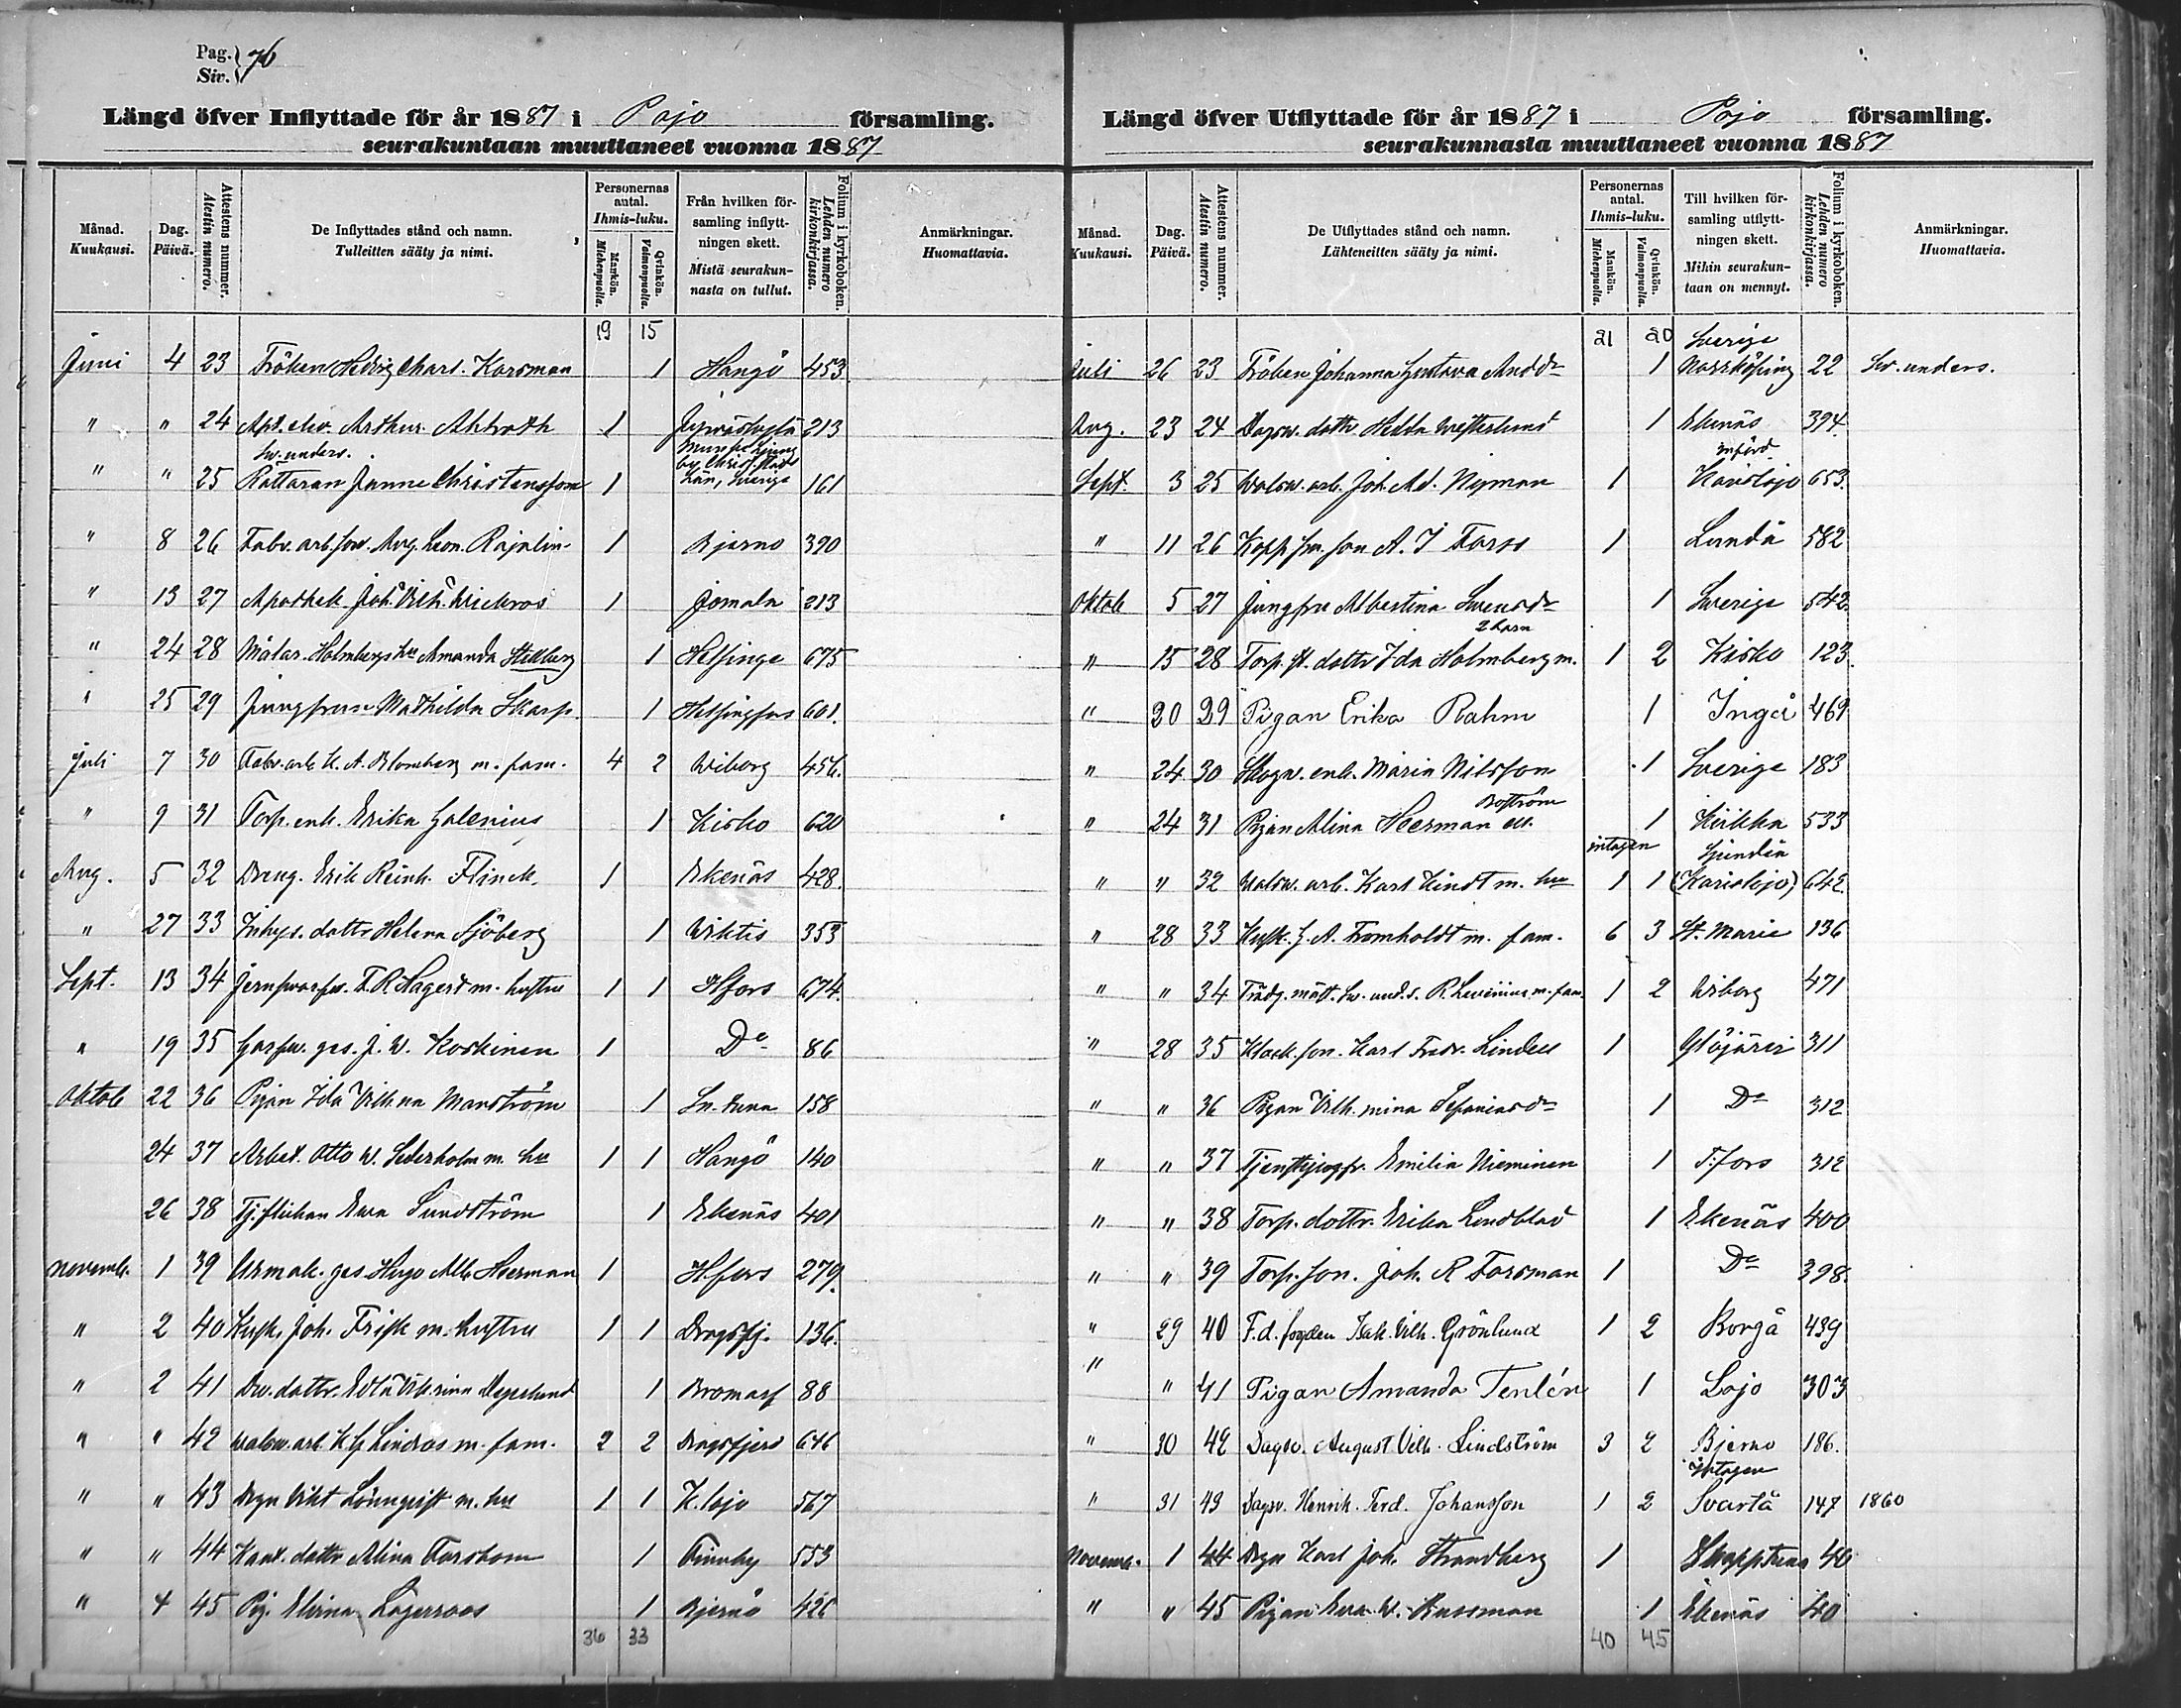 Pag. } 76
Siv.
Längd öfver Inflyttade för år 1887 i Pojo församling.
seurakuntaan muuttaneet vuonna 1887
Månad. Kuukausi.
Dag. Päivä.
Attestens nummer. Atestin numero.
De Inflyttades stånd och namn. Tulleitten sääty ja nimi.
Personernas antal. Ihmis-luku.
Mankön. Miehenpuolia.
Qvinkön. Vaimonpuolia.
Från hvilken församling inflyttningen skett. Mistä seurakunnasta on tullut.
Folium i kyrkoboken. Lehden numero kirkonkirjassa.
Anmärkningar. Huomattavia.
19 15
Juni 4 23 Fröken Hedvig Charl. Karsman 1 Hangö 453
" " 24 Apt. elev. Arthur Ahlroth 1 213
" " 25 Sv. unders. Rättaren Janne Christensson 1 län, Sverige 161
" 8 26 Fabr. arb. son Aug. Leon. Rajalin 1 Bjerno 390
" 13 27 Apothek. Joh. Vilh. Wickros 1 Jomala 213
" 24 28 Målar. Holmbergs hu Amanda Stellberg 1 Helsinge 675
" 25 29 Jungfrun Mathilda Skarp. 1 Helsingfors 601.
Juli 7 30 Fabr. arb. K. A. Blomberg m. fam. 4 2 Wiborg 456.
" 9 31 Torp. enk. Erika Galenius 1 Kisko 620
Aug. 5 32 Dreng. Erik Reinh. Flinck. 1 Ekenäs 428.
" 27 33 Inhys. dottr Helena Sjöberg 1 Wiktis 353
Sept. 13 34 F. R. Hagert m. hustru 1 1 Hfors 674.
" 19 35 ges. J. W. Koskinen 1 Do 86
Oktob 22 36 Pigan Ida Vilh:na Manström 1 158
24 37 Arbet. Otto W. Sederholm m. hu 1 1 Hangö 140
26 38 Tj. flickan Ewa Sundström 1 Ekenäs 401
Novemb. 1 39 Urmak. ges Hugo Alb. Heerman 1 Hfors 279.
" 2 40 Kusk. Joh. Frisk m. hustru 1 1 Dragsfj. 136.
" 2 41 Dw. dottr. Edla 1 Bromarf 88
" " 42 Walsw. arb. K G Lindros m. fam. 2 2 Dragsfjerd 646
" " 43 Drgn Vikt Lönnqvist m. hu 1 1 K. lojo 567
" " 44 dottr Alina Forsbom 1 Finnby 553
" 4 45 Pig. Elvina Lägerroos 1 Bjerno 426
36 33
Längd öfver Utflyttade för år 1887 i Pojo församling.
seurakunnasta muuttaneet vuonna 1887
Månad. Kuukausi.
Dag. Päivä.
Attestens nummer. Atestin numero.
De Utflyttades stånd och namn. Lähteneitten sääty ja nimi.
Personernas antal. Ihmis-luku.
Mankön. Miehenpuolia.
Qvinkön. Vaimonpuolia.
Till hvilken församling utflyttningen skett. Mihin seurakuntaan on mennyt.
Folium i kyrkoboken. Lehden numero kirkonkirjassa.
Anmärkningar. Huomattavia.
21 20 Sverige
Juli 26 23 Fröken Johanna Gustava Anddr 1 Norrköping 22 Sv. unders.
Aug. 23 24 Dagsw. dottr Hilda Westerlund 1 Ekenäs 394.
införd
Sept. 3 25 Walsw. arb. Joh. Ad. Nyman 1 Karislojo 653.
" 11 26 son A. J Forss 1 Lundå 582
Oktob 5 27 Jungfru Albertina Svensdr 1 Sverige 542
2 barn
" 15 28 Torp. dottr Ida Holmberg m. 1 2 Kisko 123.
" 20 29 Pigan Erika Rahm 1 Ingå 469
" 24 30 Skogw. enk. Maria Nilsson 1 Sverige 183
Boström
" 24 31 Pigan Alina Heerman ell. 1 Kiikka 533
intagen Sjundeå
" " 32 Walsw. arb. Karl Kindt m. hu 1 1 (Karislojo) 642
" 28 33 Kusk. G. A. Fromholdt m. fam. 6 3 St. Marie 136
" " 34 Trädg. mäst. Sv. und. s. R. Levenius m. fam. 1 2 Wiborg 471
" 28 35 Klock. son. Karl Fredr. Lindell 1 Ylöjärvi 311
" " 36 Pigan Vilh. mina Sefaniasdr 1 Do 312
" " 37 Tjenstejungfr. Emilia Nieminen 1 T:fors 312
" " 38 Torp. dottr. Erika Lindblad 1 Ekenäs 400
" " 39 Torp. son. Joh. R Forsman 1 Do 398.
" 29 40 F. d. fogden Isak. Vilh. Grönlund 1 2 Borgå 439
" " 41 Pigan Amanda Tenlén 1 Lojo 303
" 30 42 Dagsv. August Vilh. Lindström 3 2 Bjerno 186.
Intagen
" 31 43 Dagsv. Henrik. Ferd. Johansson 1 2 Svartå 147 1860
Novemb. 1 44 Drgn Karl Joh. Strandberg 1 40
" " 45 Pigan Eva W. Kussman 1 Ekenäs 40
40 45